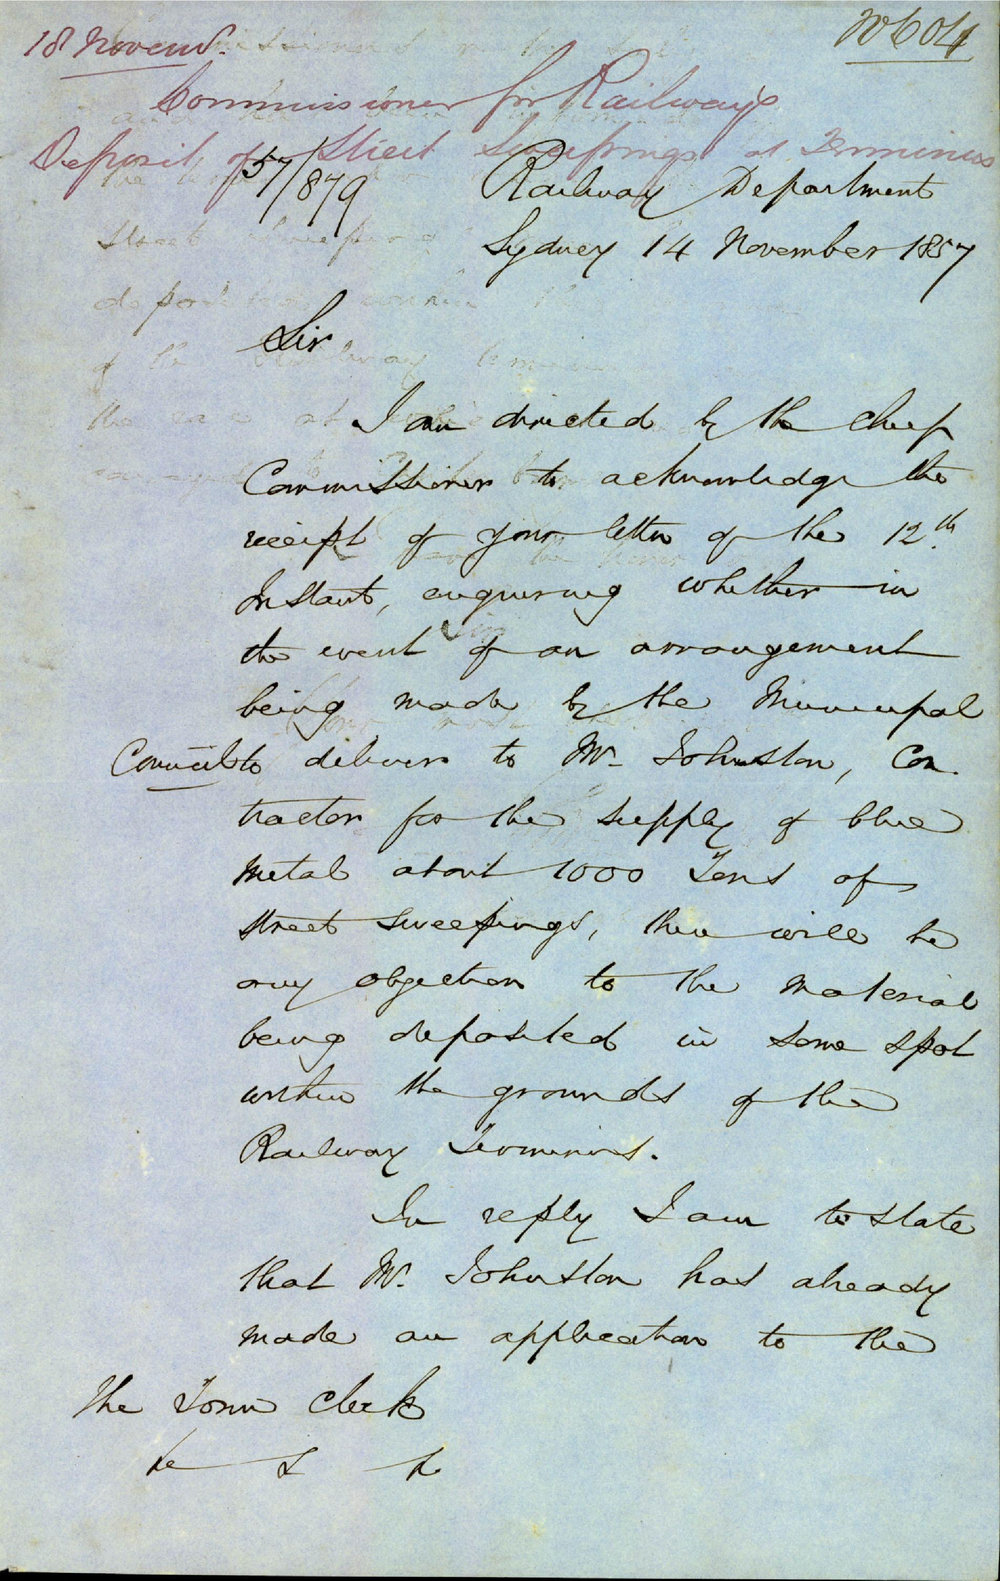 18 Novem.
No 604
Commissioner for Railways
Deposit of Street Sweepings at Terminus
57/879
Railway Department
Sydney 14 November 1857
Sir
I am directed by the Chief
Commissioner to acknowledge the
receipt of your letter of the 12th
Instant, enquiring whether in
the event of an arrangement
being made by the Municipal
Council to deliver to Mr Johnston, Con
tractor for the supply of blue
metal about 1000 Tons of
street sweepings, there will be
any objection to the material
being deposited in some spot
within the grounds of the
Railway Terminus.
In reply I am to state
that Mr. Johnston has already
made an application to the
The Town Clerk